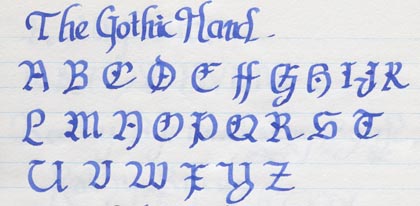 The Gothic Hand.
A B C D E F G H I J K
L M N O P Q R S T
U V W X Y Z